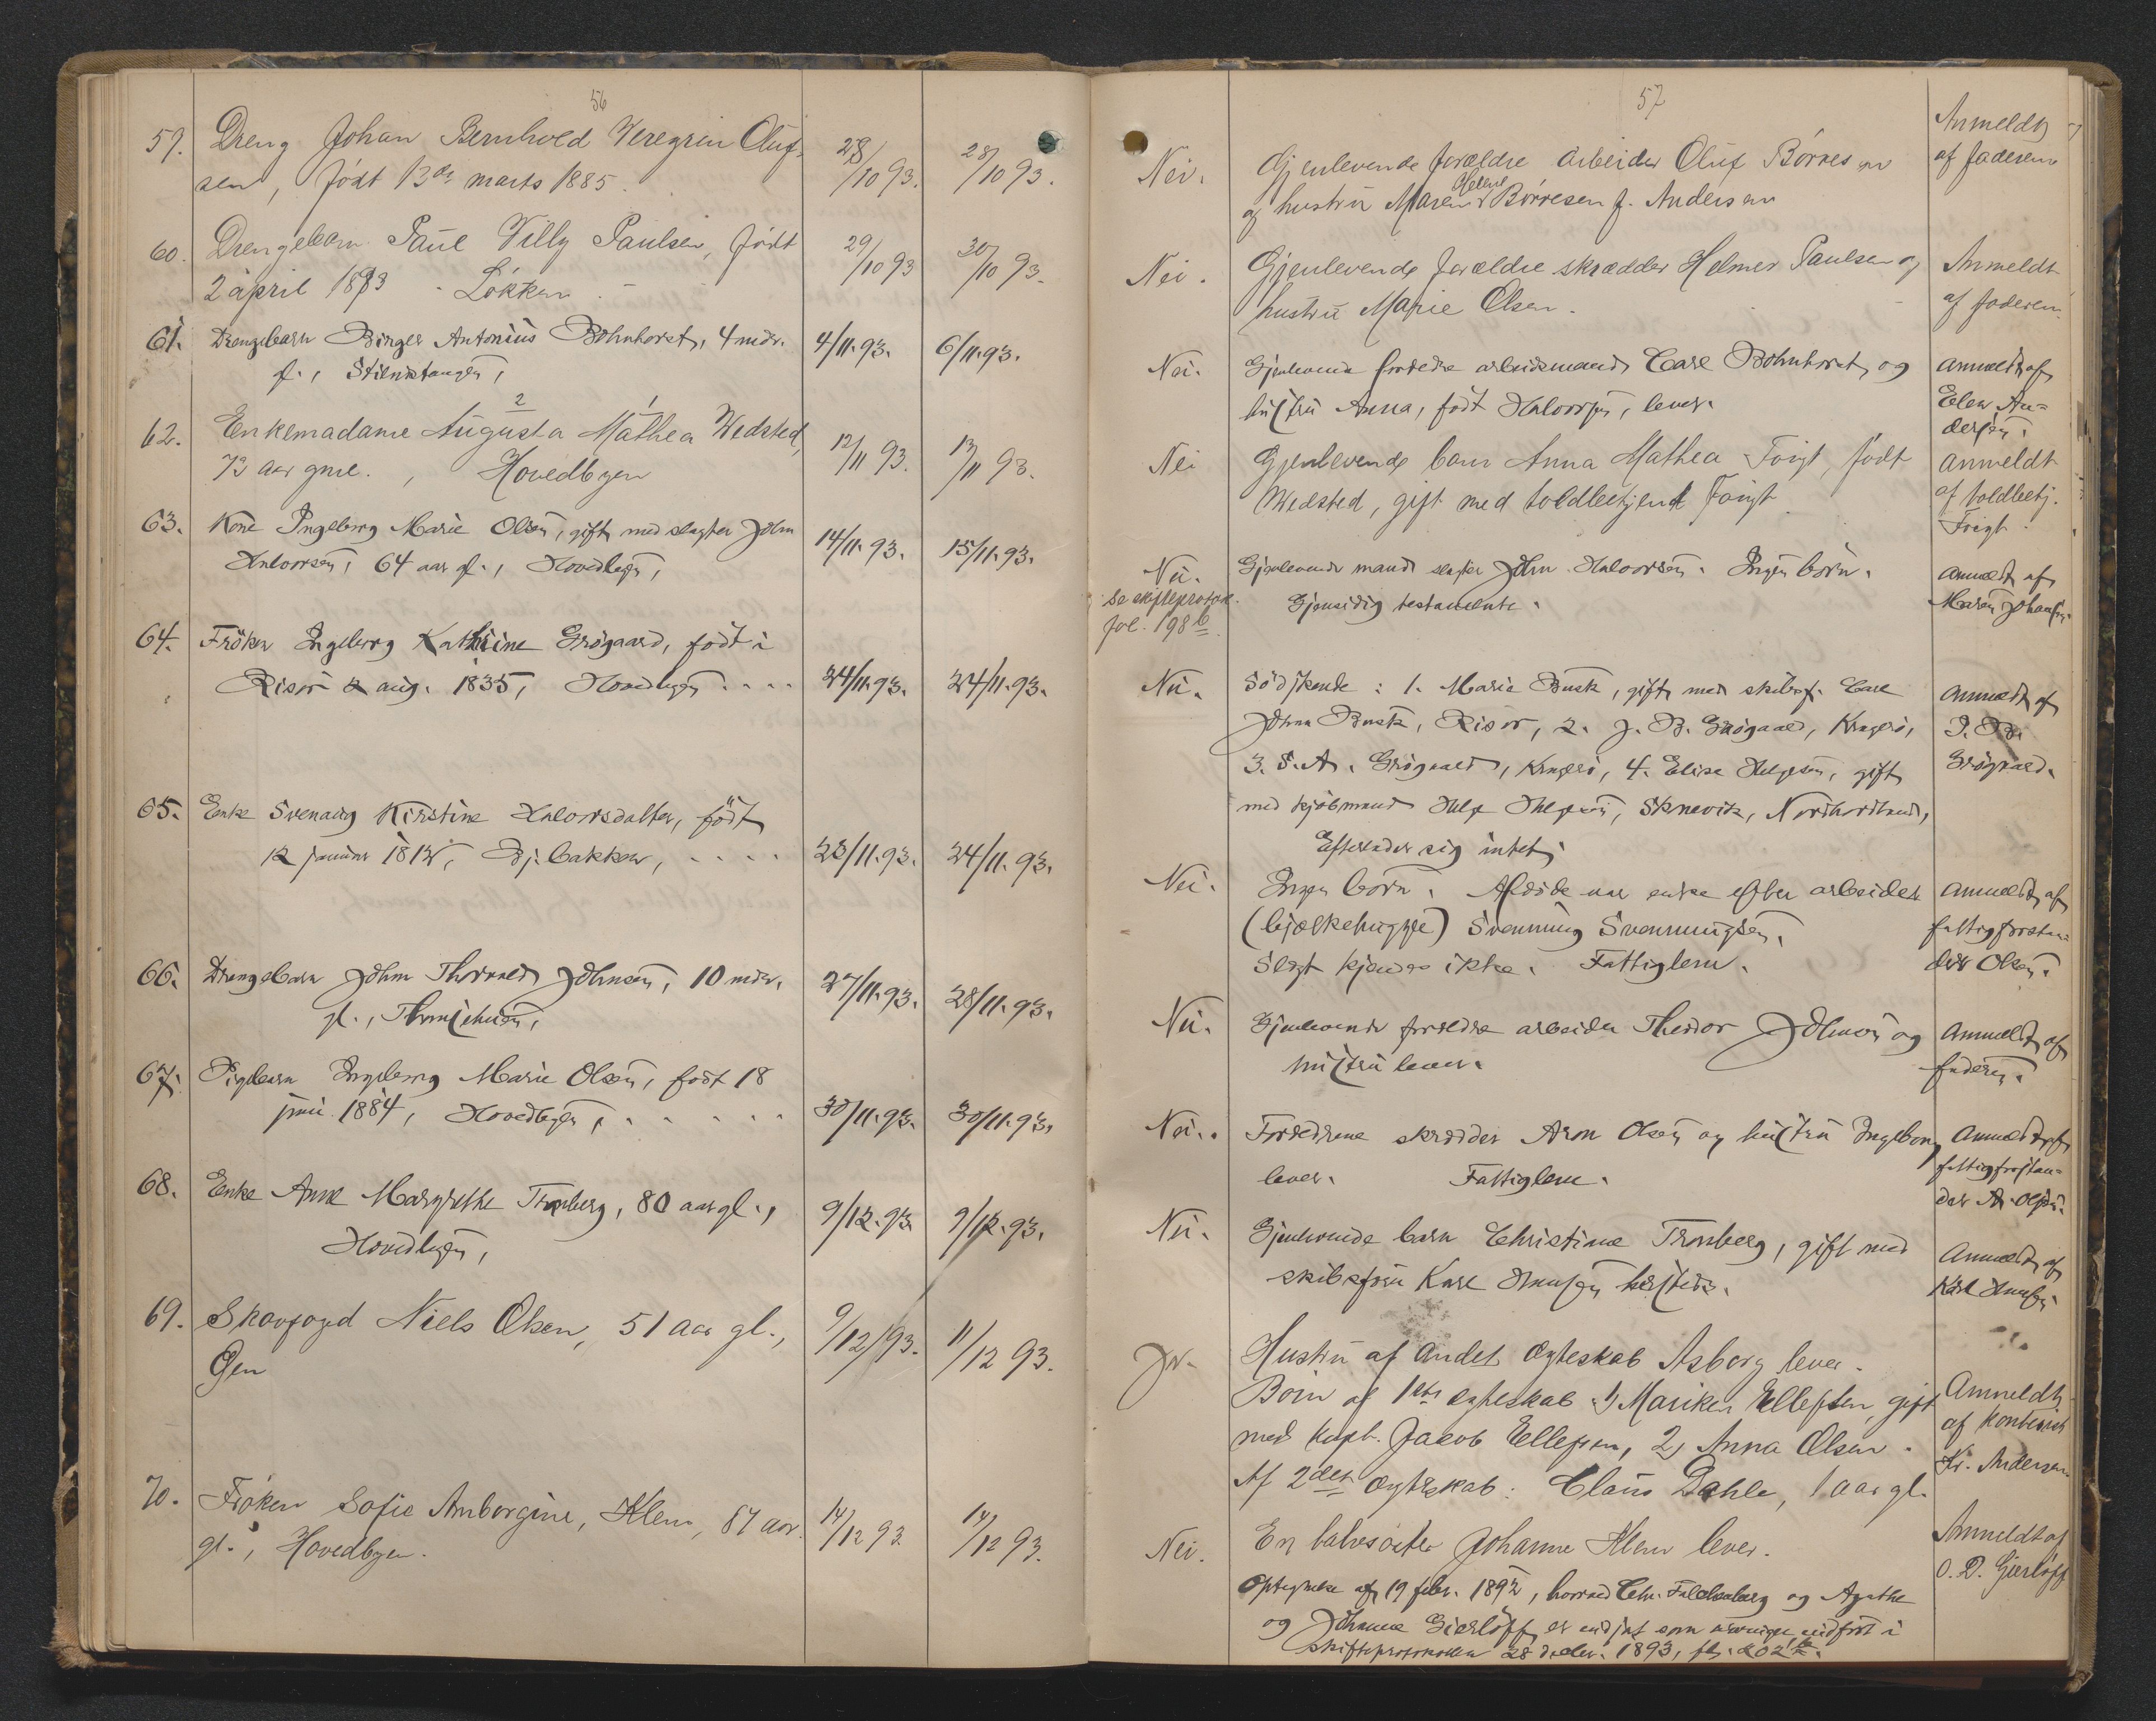 56
59. Dreng Johan Bernhold Veregrin Oluf-
sen, født 13de marts 1885. 28/10 93. 28/10 93.
60. Drengebarn Paul Villy Paulsen, født
2 april 1893 - Løkken - 29/10 93 30/10 93.
61. Drengebarn Birger Antonius Bohnhorst, 4 mdr.
gl., Stilnestangen, 4/11.93. 6/11.93.
62. Enkemadame Augusta Mathea Wedsted,
73 aar gml., Hovedbyen 12/11 93. 13/11 93.
63. Kone Ingeborg Marie Olsen, gift med slagter John
Halvorsen, 64 aar gl., Hovedbyen, 14/11.93. 15/11.93.
64. Frøken Ingeborg Kathrine Grøgaard, født i
Risør 2 aug. 1835, Hovedbyen . . . . 24/11.93. 24/11.93.
65. Enke Svenaug Kirstine Halvorsdatter, født
12 januar 1812, Bj.bakken, . . . . 23/11.93. 24/11.93.
66. Drengebarn John Thorvald Johnsen, 10 mdr.
gl., 27/11.93. 28/11.93.
67. Pigebarn Ingeborg Marie Olsen, født 18
juni 1884, Hovedbyen, . . . . . 30/11.93. 30/11.93.
68. Enke Anne Margrethe Tronberg, 80 aar gl.,
Hovedbyen, 9/12.93. 9/12.93.
69. Skovfoged Niels Olsen, 51 aar gl.,
Øen 9/12/93. 11/12 93.
70. Frøken Sofie Amborgine, Klem, 87 aar
gl., Hovedbyen. 14/12 93. 14/12 93.
57
Nei. Gjenlevende forældre arbeider Oluf Børresen
og hustru Maren Børresen f. Andersen
Anmeldt
af faderen
Nei. Gjenlevende forældre skrædder Helmer Paulsen og
hustru Marie Olsen.
Anmeldt
af faderen
Nei. Gjenlevende forældre arbeidsmand Carl Bohnhorst og
hustru Anna, født Halvorsen, lever.
Anmeldt af
Elen An-
dersen.
Nei Gjenlevende barn Anna Mathea Foigt, født
Wedsted, gift med toldbetjent Foigt
Anmeldt
af toldbetj.
Foigt.
Nei. Gjenlevende mand slagter John Halvorsen. Ingen børn.
Se skifteprotok.
fol. 198b
Gjensidig testamente.
Anmeldt af
Maren Johansen.
Nei. Sødskende: 1. Marie Busk, gift med skibsf. Carl
Johan Busk, Risør, 2. J. B. Grøgaard, Kragerø,
3. S. A. Grøgaard, Kragerø, 4. Elise Helgesen, gift
med kjøbmand Helge Helgesen, Sknevik, Nordhordland,
Efterlader sig intet.
Anmeldt af
J. B.
Grøgaard.
Nei. Ingen børn. Afdøde var enke efter arbeider
(bjælkehugger) Svenning Svenningsen.
Slegt kjendes ikke. Fattiglem.
Anmeldt af
fattigforstan-
der Olsen.
Nei. Gjenlevende forældre arbeider Theodor Johnsen og
hustru lever.
Anmeldt af
faderen.
Nei. Forældrene skrædder Aron Olsen og hustru Ingeborg
lever. Fattiglem.
Anmeldt af
fattigforstan-
der A. Olsen.
Nei. Gjenlevende barn Christine Tronberg, gift med
skibsfører Karl Hansen hersteds.
Anmeldt af
Karl Hansen.
Ja. Hustru af andet ægteskab Asborg lever.
Børn af 1ste ægteskab 1) Mariken Ellefsen, gift
med kapt. Jacob Ellefsen, 2) Anna Olsen.
Af 2det ægteskab: Claus Dahle, 1 aar gl.
Anmeldt
af kontorist
Kr. Andersen
Nei. En halvsøster Johanne Klem lever.
Optegnelse af 19 febr. 1892, hvorved Chr. Falckenberg og Agathe
og Johanna Gierløff er indsat som arvinger indført i
skifteprotokollen 28 decbr. 1893, fol. 202b.
Anmeldt af
O. D. Gierløff